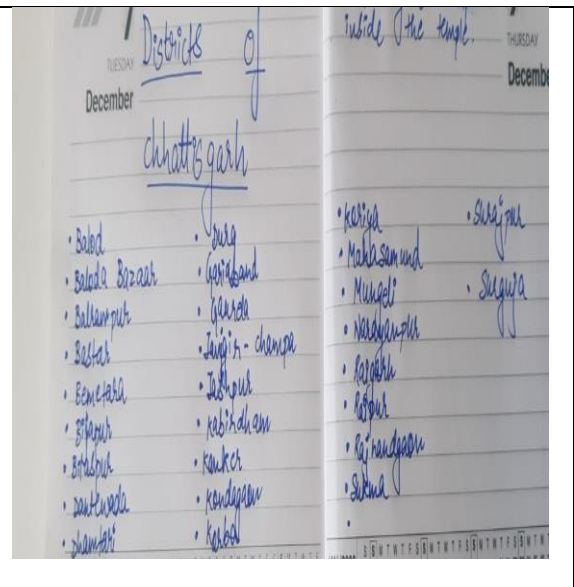 TUESDAY
December
Districts of
Chhattisgarh
• Balod
• Baloda Bazaar
• Balrampur
• Bastar
• Bemetara
• Bijapur
• Bilaspur
• Dantewada
• Dhamtari
• Durg
• Gariaband
• Gaurela
• Janjgir - Champa
• Jashpur
• Kabirdham
• Kanker
• Kondagaon
• Korba
inside the temple.
THURSDAY
Decembe
• Koriya
• Mahasamund
• Mungeli
• Narayanpur
• Raigarh
• Raipur
• Rajnandgaon
• Sukma
•
• Surajpur
• Surguja